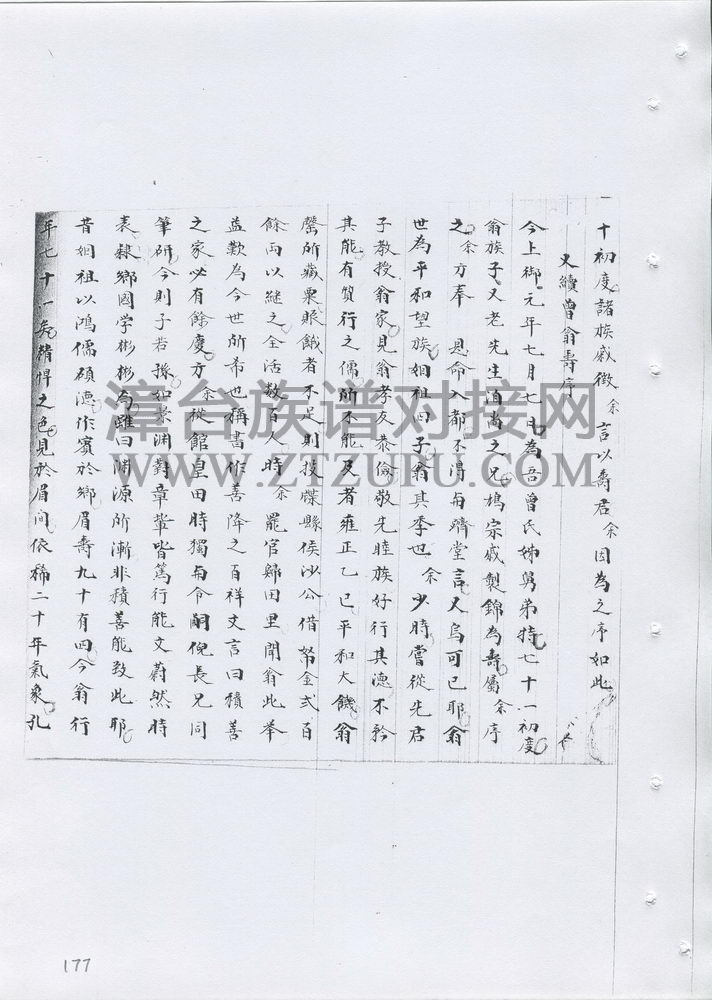 十初度諸族戚徵余言以壽君余因為之序如此
又續曾翁壽序
今上御元年七月七日為吾曾氏姊舅弟特七十一初度
翁族子又老先生道尚之兄鳩宗戚製錦為壽屬余序
之余方奉恩命入都不得與躋堂言又烏可已耶翁
世為平和望族姻祖四子翁其季也余少時嘗從先君
子教授翁家見翁孝友恭儉敬先睦族好行其德不矜
其能有質行之儒所不能及者雍正乙巳平和大饑翁
罄所藏粟賑餓者不足則投牒縣侯沙公借帑金弍百
餘両以継之全活數百人時余罷官歸田里聞翁此举
益歎為今世所希也稱書作善降之百祥文言曰積善
之家必有餘慶方余從館皇田時獨與令嗣倪長兄同
筆硏今則子若孫如景渊對章輩皆篤行能文蔚然時
表隸鄉國学彬彬為雖曰渊源所漸非積善能致此耶
昔姻祖以鴻儒碩德作賓於鄉眉壽九十有四今翁行
年七十一矣精悍之色見於眉间依稀二十年氣象孔
漳台族谱对接网
WWW.ZTZUPU.COM
177